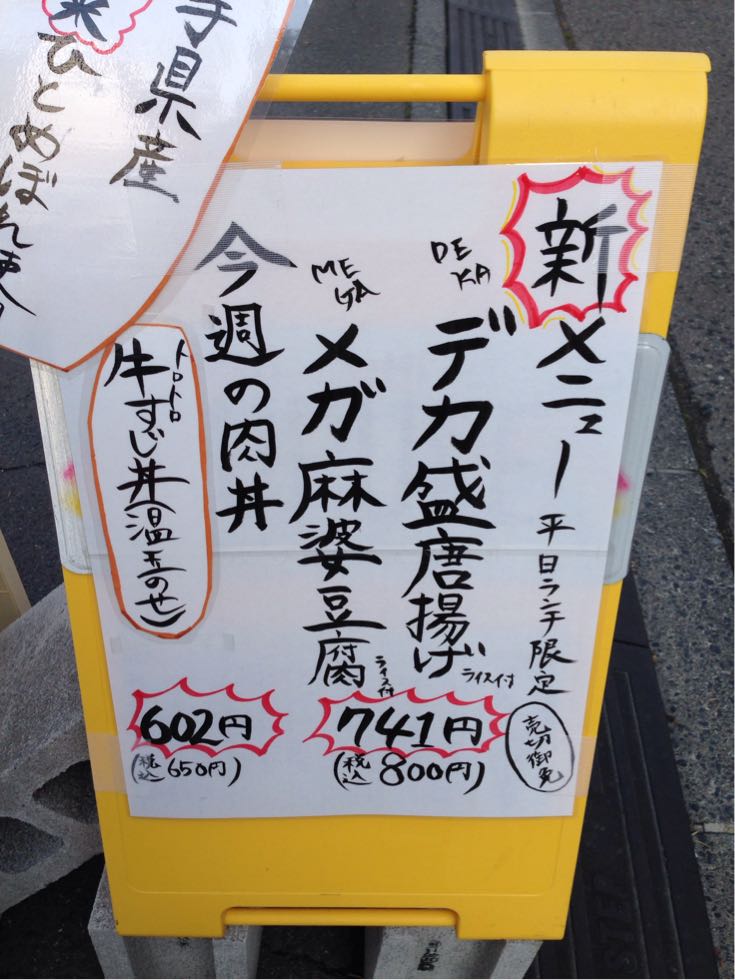 新メニュー 平日ランチ限定
売切御免
DEKA
デカ盛唐揚げ ライス付
MEGA
メガ麻婆豆腐 ライス付
741円
(税込800円)
今週の肉丼
トロトロ
牛すじ丼(温玉のせ)
602円
(税込650円)
手県産
米ひとめぼれ使